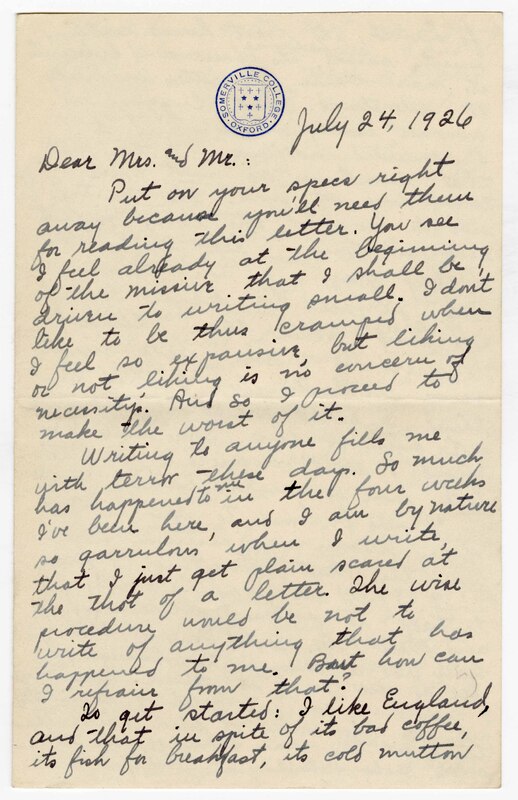 SOMERVILLE COLLEGE
OXFORD
July 24, 1926
Dear Mrs. and Mr.:
Put on your specs right
away because you'll need them
for reading this letter. You see
I feel already at the beginning
of the missive that I shall be
driven to writing small. I don't
like to be thus cramped when
I feel so expansive, but liking
or not liking is no concern of
necessity. And so I proceed to
make the worst of it.
Writing to anyone fills me
with terror these days. So much
has happened to me in the four weeks
I've been here, and I am by nature
so garrulous when I write,
that I just get plain scared at
the thot of a letter. The wise
procedure would be not to
write of anything that has
happened to me. But how can
I refrain from that?
To get started: I like England,
and that in spite of its bad coffee,
its fish for breakfast, its cold mutton